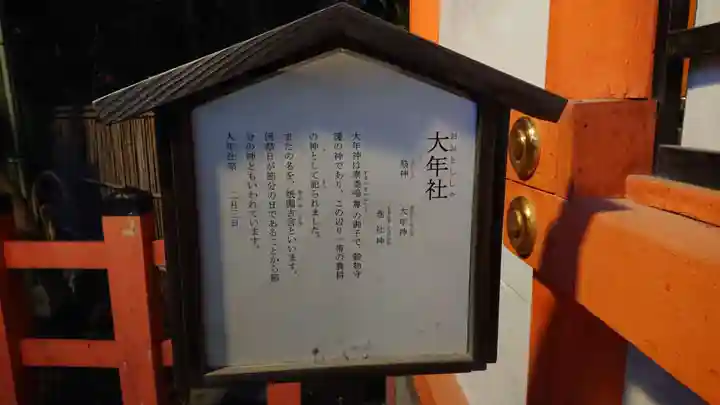 大年社
おおとししゃ
祭神 大年神
巷社神
大年神は素戔嗚尊の御子で、穀物守
護の神であり、この辺り一帯の農耕
の神として祀られました。
またの名を、祇園吉言といいます。
例祭日が節分の日であることから節
分の神ともいわれています。
大年社祭 二月三日